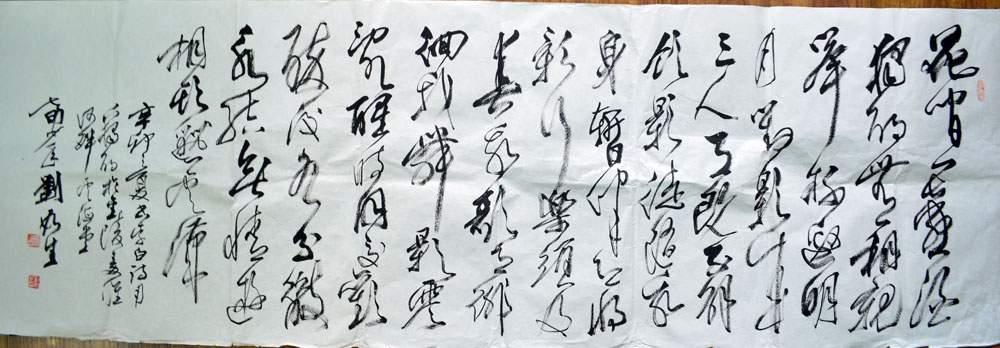 花間一壺酒
獨酌無相親
舉杯邀明
月對影成
三人月既不解
飲影徒隨我
身暫伴月將
影行樂須及
春我歌月徘
徊我舞影零
亂醒時同交歡
醉後各分散
永結無情遊
相期邈雲漢
辛卯之夏李白詩月
下獨酌於金陵
劉生